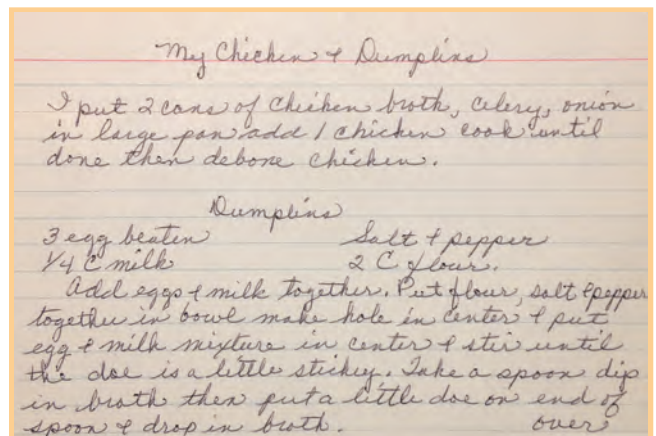 My Chicken & Dumplins
I put 2 cans of Chicken broth, Celery, onion
in large pan add 1 chicken cook until
done then debone chicken.
Dumplins
3 egg beaten Salt & pepper
1/4 C milk 2 C flour.
Add eggs & milk together. Put flour, salt & pepper
together in bowl make hole in center & put
egg & milk mixture in center & stir until
the doe is a little stickey. Take a spoon dip
in broth then put a little doe on end of
spoon & drop in broth. over